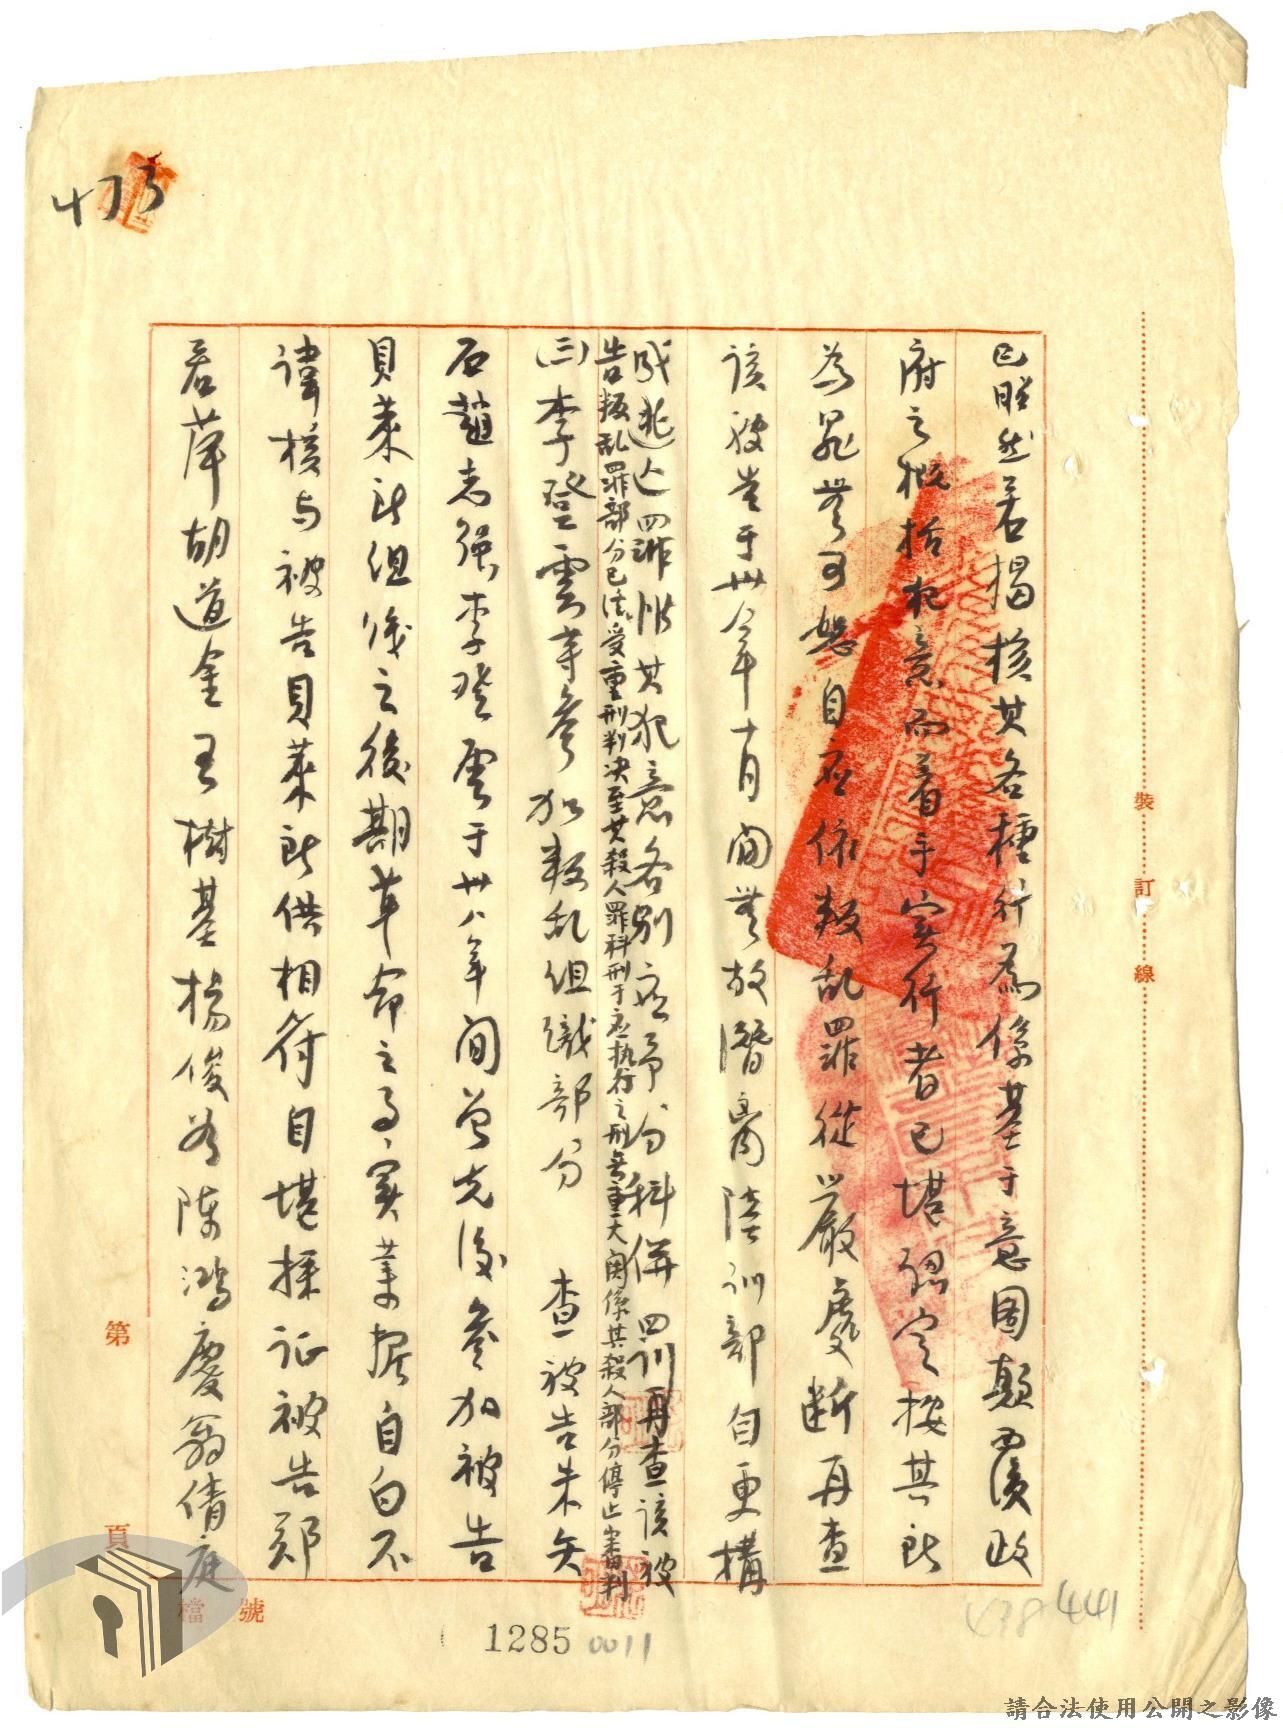 473
已昭然若揭核其各種行為係基于意圖顛覆政
府之概括犯意而着手實行者已堪認定按其所
為罪無可恕自应依叛乱罪從嚴處断再查
該被告于卅八年十月間無故潛離陸訓部自更構
成逃亡罪惟其犯意各別应予分科併罰再查該被
告叛乱罪部分已浩受重刑判决至其殺人罪科刑于应执行之刑無重大関係其殺人部分停止審判
(三)李登雲等參加叛乱组織部分 查被告朱矢
石趙志強李登雲于卅八年間曾先後參加被告
貝萊所组織之後期革命之事實業据自白不
諱核与被告貝萊所供相符自堪採证被告郑
若萍胡道金王樹基楊俊 陈鴻慶翁倩庭
裝訂線
第頁
檔號
1285 0011
478 441
請合法使用公開之影像